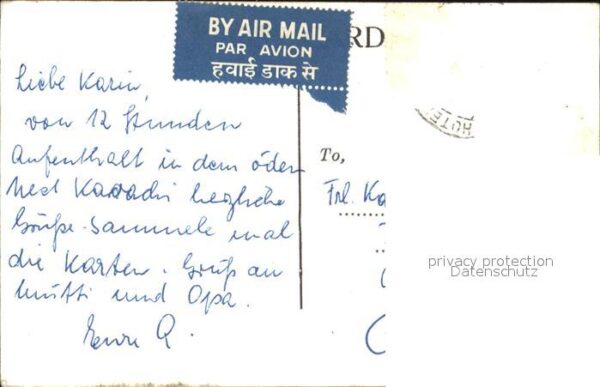 BY AIR MAIL
PAR AVION
हवाई डाक से
RD
Liebe Karin,
von 12 Stunden
Aufenthalt in dem öden
Nest Karachi herzliche
Grüße. Sammele mal
die Karten. Gruß an
Mutti und Opa.
HOTEL
To,
Frl. Ka
privacy protection
Datenschutz